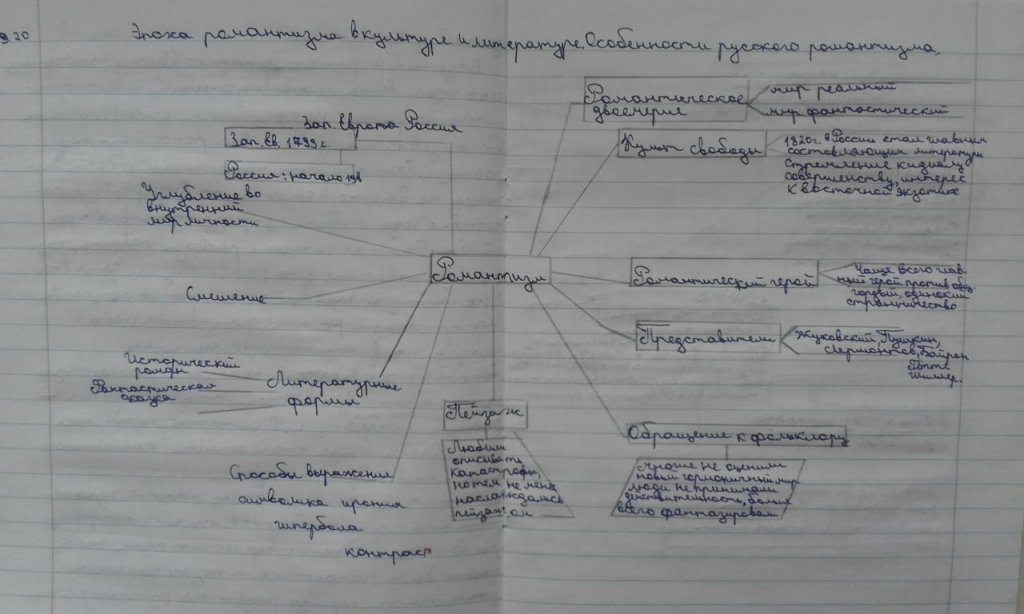 9.20
Эпоха романтизма в культуре и литературе. Особенности русского романтизма,
Зап. Европа Россия
Зап. Ев. 1799 г.
Россия: начало 19в
Углубление во
внутренний
мир личности
Смешение
Исторический
роман
Фантастическая
сказка
Литературные
формы
Способы выражения
символика ирония
гипербола
контраст
Романтизм
Пейзаж
Любили
описывать
катастрофы,
но тем не мене
наслаждались
пейзажом
Романтическое
двоемирие
мир реальный
мир фантастический
Культ свободы
1820г. в России стал главным
составляющим литературы
Стремление к идеалу
совершенству, интерес
к восточной экзотике
Романтический герой
Чаще всего глав-
ный герой против
гордый, одинокий
странничество
Представители
Жуковский, Пушкин,
Лермонтов, Байрон
Гёте
Шиллер
Обращение к фольклору
не оценили
новый гормоничный мир
люди не принимали
действительность, больше
всего фантазировали